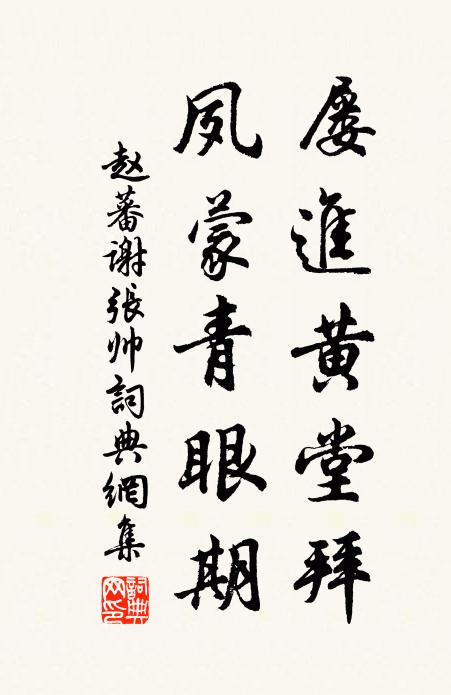 屡進黄堂拜
夙蒙青眼期
赵蕃谢張帅詞典網集
詞典网印